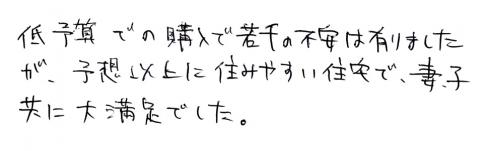 低予算での購入で若干の不安は有りました
が、予想以上に住みやすい住宅で、妻、子
共に大満足でした。